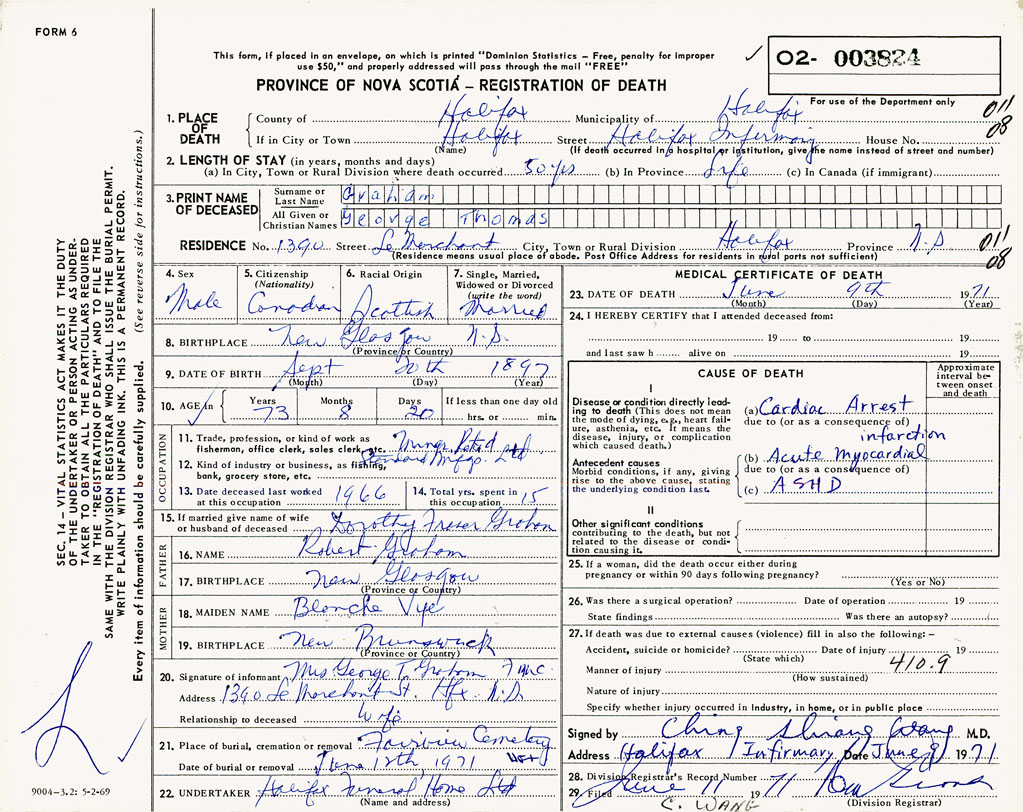 FORM 6
This form, if placed in an envelope, on which is printed "Dominion Statistics – Free, penalty for improper
use $50," and properly addressed will pass through the mail "FREE"
✓ 02- 003824
PROVINCE OF NOVA SCOTIA – REGISTRATION OF DEATH
For use of the Department only
1. PLACE OF DEATH
County of Halifax Municipality of Halifax 011
If in City or Town Halifax Street Halifax Infirmary House No. 08
(Name) (If death occurred in a hospital or institution, give the name instead of street and number)
2. LENGTH OF STAY (in years, months and days)
(a) In City, Town or Rural Division where death occurred 50 yrs (b) In Province Life (c) In Canada (if immigrant)
3. PRINT NAME OF DECEASED
Surname or Last Name Graham
All Given or Christian Names George Thomas
RESIDENCE No. 1390 Street Le Marchant City, Town or Rural Division Halifax Province N.S 011
(Residence means usual place of abode. Post Office Address for residents in rural parts not sufficient) 08
4. Sex Male
5. Citizenship (Nationality) Canadian
6. Racial Origin Scottish
7. Single, Married, Widowed or Divorced (write the word) Married
8. BIRTHPLACE New Glasgow N.S.
(Province or Country)
9. DATE OF BIRTH Sept 20th 1897
(Month) (Day) (Year)
10. AGE in Years 73 Months 8 Days 20 If less than one day old hrs. or min.
OCCUPATION
11. Trade, profession, or kind of work as fisherman, office clerk, sales clerk, etc. Retd
12. Kind of industry or business, as fishing, bank, grocery store, etc. Standard Mfgs. Ltd
13. Date deceased last worked at this occupation 1966
14. Total yrs. spent in this occupation 15
15. If married give name of wife or husband of deceased Dorothy Fraser Graham
FATHER
16. NAME Robert Graham
17. BIRTHPLACE New Glasgow
(Province or Country)
MOTHER
18. MAIDEN NAME Blanche Vye
19. BIRTHPLACE New Brunswick
(Province or Country)
20. Signature of informant Mrs George T. Graham
Address 1390 Le Marchant St. Hfx N.S.
Relationship to deceased Wife
21. Place of burial, cremation or removal Fairview Cemetery
Date of burial or removal June 12th, 1971 Hfx
22. UNDERTAKER Halifax Funeral Home Ltd
(Name and address)
MEDICAL CERTIFICATE OF DEATH
23. DATE OF DEATH June 9th 1971
(Month) (Day) (Year)
24. I HEREBY CERTIFY that I attended deceased from:
19 to 19
and last saw h alive on 19
CAUSE OF DEATH
Approximate interval between onset and death
I
Disease or condition directly leading to death (This does not mean the mode of dying, e.g., heart failure, asthenia, etc. It means the disease, injury, or complication which caused death.)
(a) Cardiac Arrest
due to (or as a consequence of)
infarction
Antecedent causes
Morbid conditions, if any, giving rise to the above cause, stating the underlying condition last.
(b) Acute Myocardial
due to (or as a consequence of)
(c) ASHD
II
Other significant conditions
contributing to the death, but not related to the disease or condition causing it.
25. If a woman, did the death occur either during pregnancy or within 90 days following pregnancy?
(Yes or No)
26. Was there a surgical operation? Date of operation 19
State findings Was there an autopsy?
27. If death was due to external causes (violence) fill in also the following: –
Accident, suicide or homicide? Date of injury 19
(State which) 410.9
Manner of injury
(How sustained)
Nature of injury
Specify whether injury occurred in industry, in home, or in public place
Signed by Ching Shiang Wang M.D.
Address Halifax Infirmary Date June 9 1971
28. Division Registrar's Record Number
29. Filed June 11 1971
(Division Registrar)
C. WANG
SEC. 14 – VITAL STATISTICS ACT MAKES IT THE DUTY
OF THE UNDERTAKER OR PERSON ACTING AS UNDER-
TAKER TO OBTAIN ALL THE PARTICULARS REQUIRED
IN THE "REGISTRATION OF DEATH" AND TO FILE THE
SAME WITH THE DIVISION REGISTRAR WHO SHALL ISSUE THE BURIAL PERMIT.
WRITE PLAINLY WITH UNFADING INK. THIS IS A PERMANENT RECORD.
Every item of information should be carefully supplied. (See reverse side for instructions.)
9004-3.2: 5-2-69